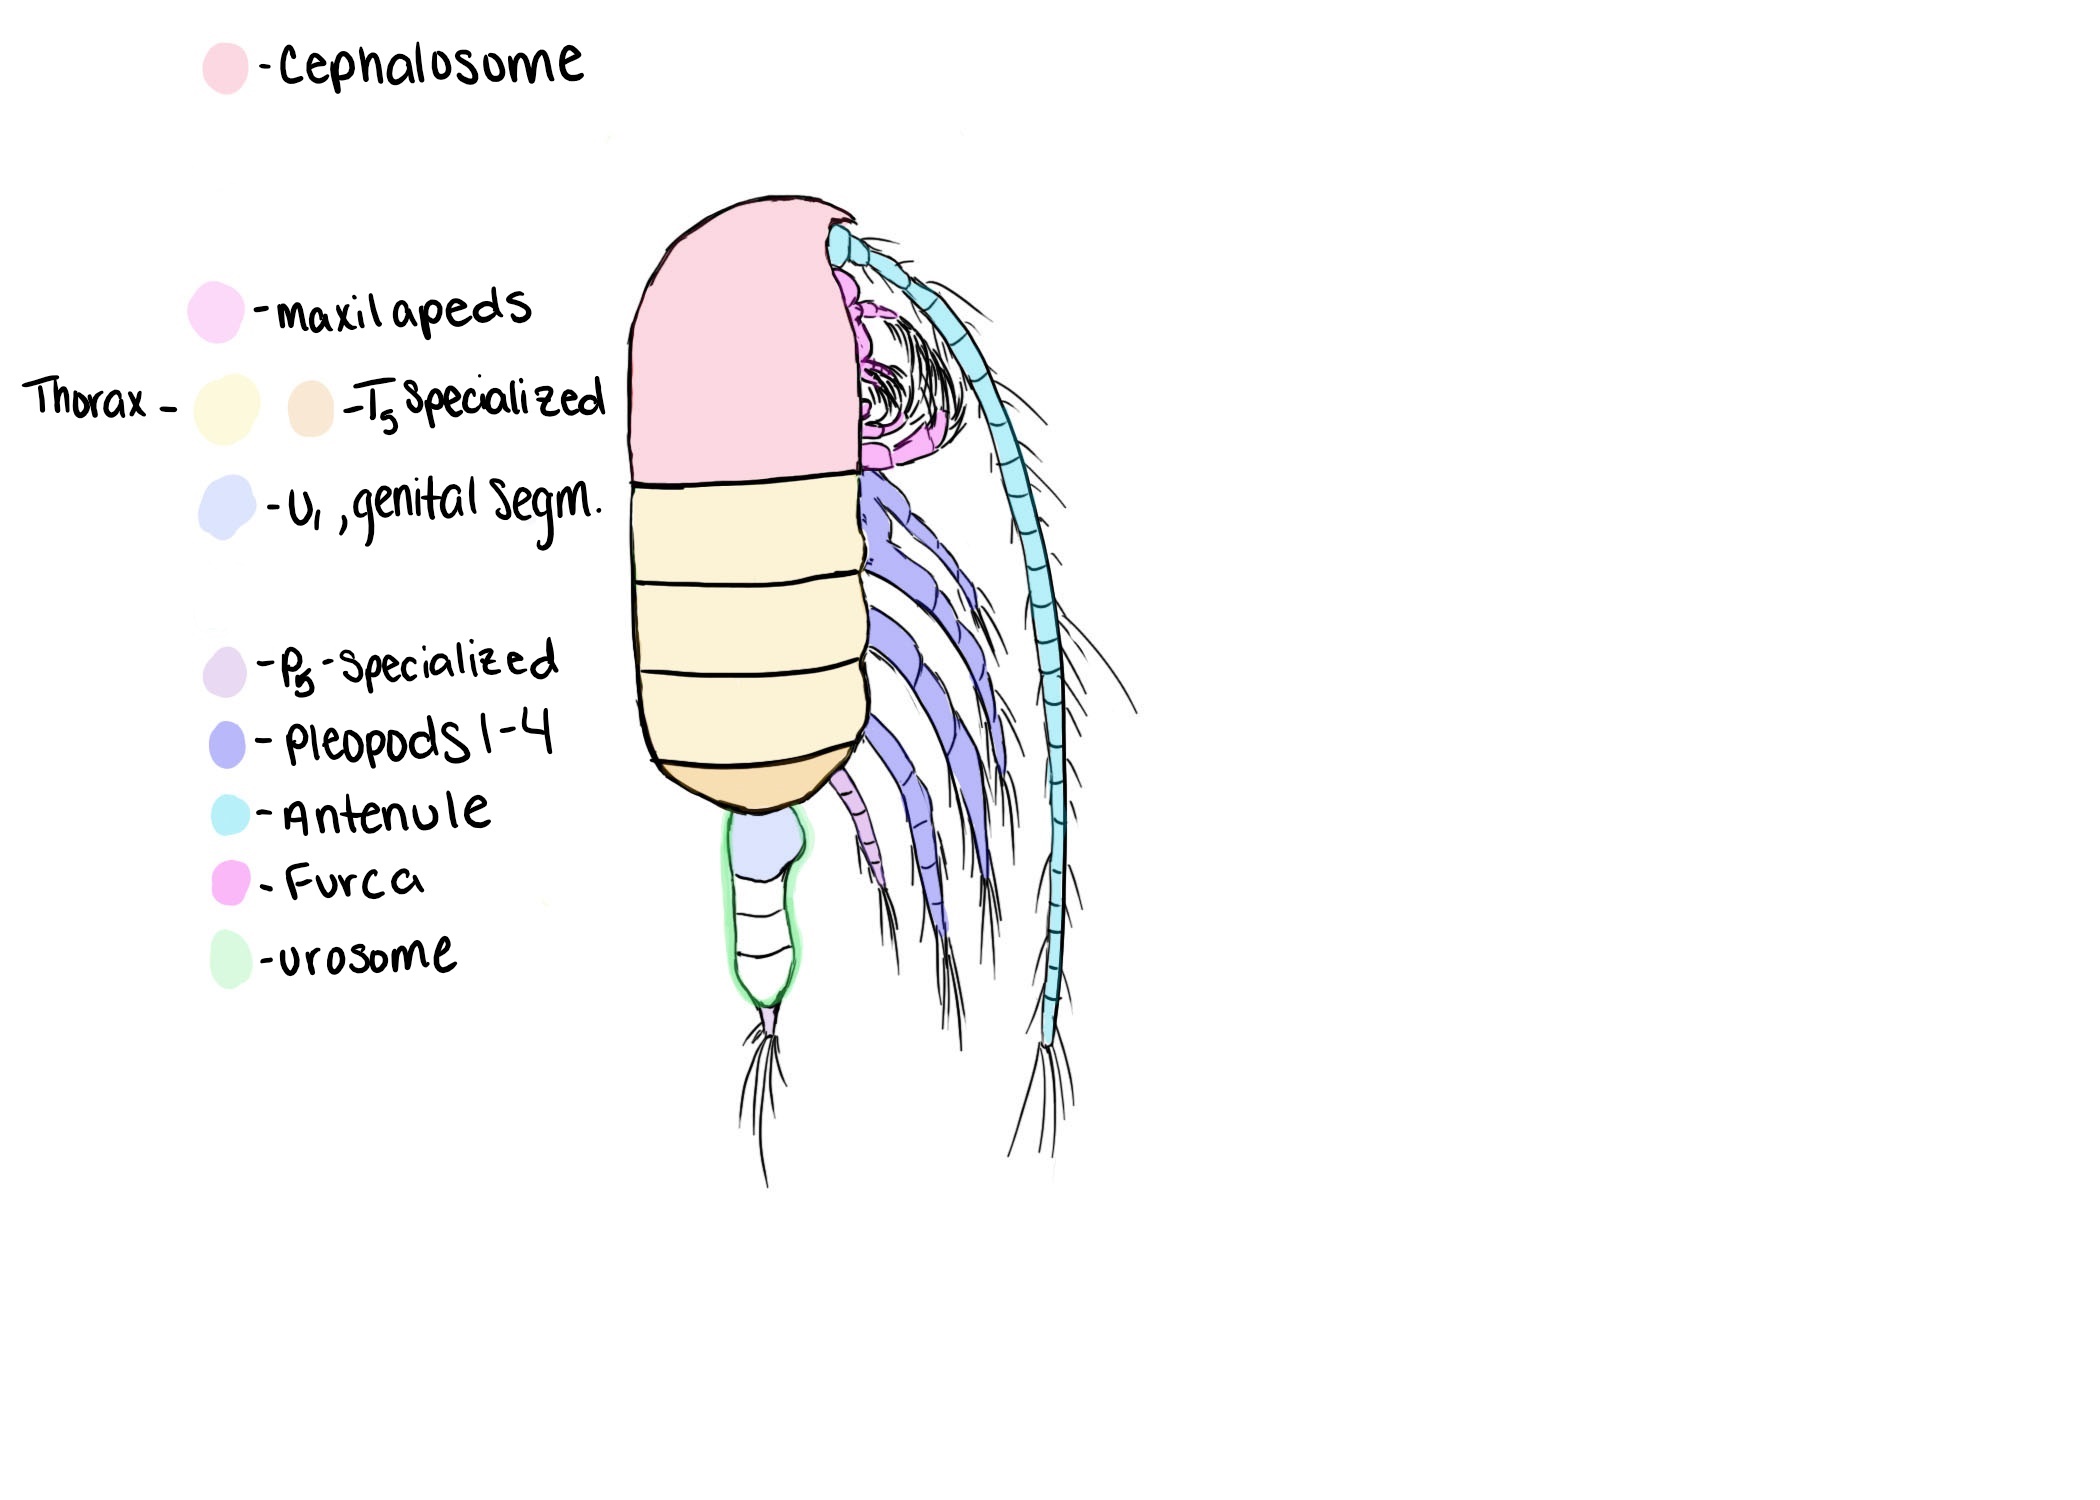 - Cephalosome
- maxilapeds
Thorax - - T5 Specialized
- U1, genital Segm.
- P5 - Specialized
- Pleopods 1-4
- Antenule
- Furca
- urosome